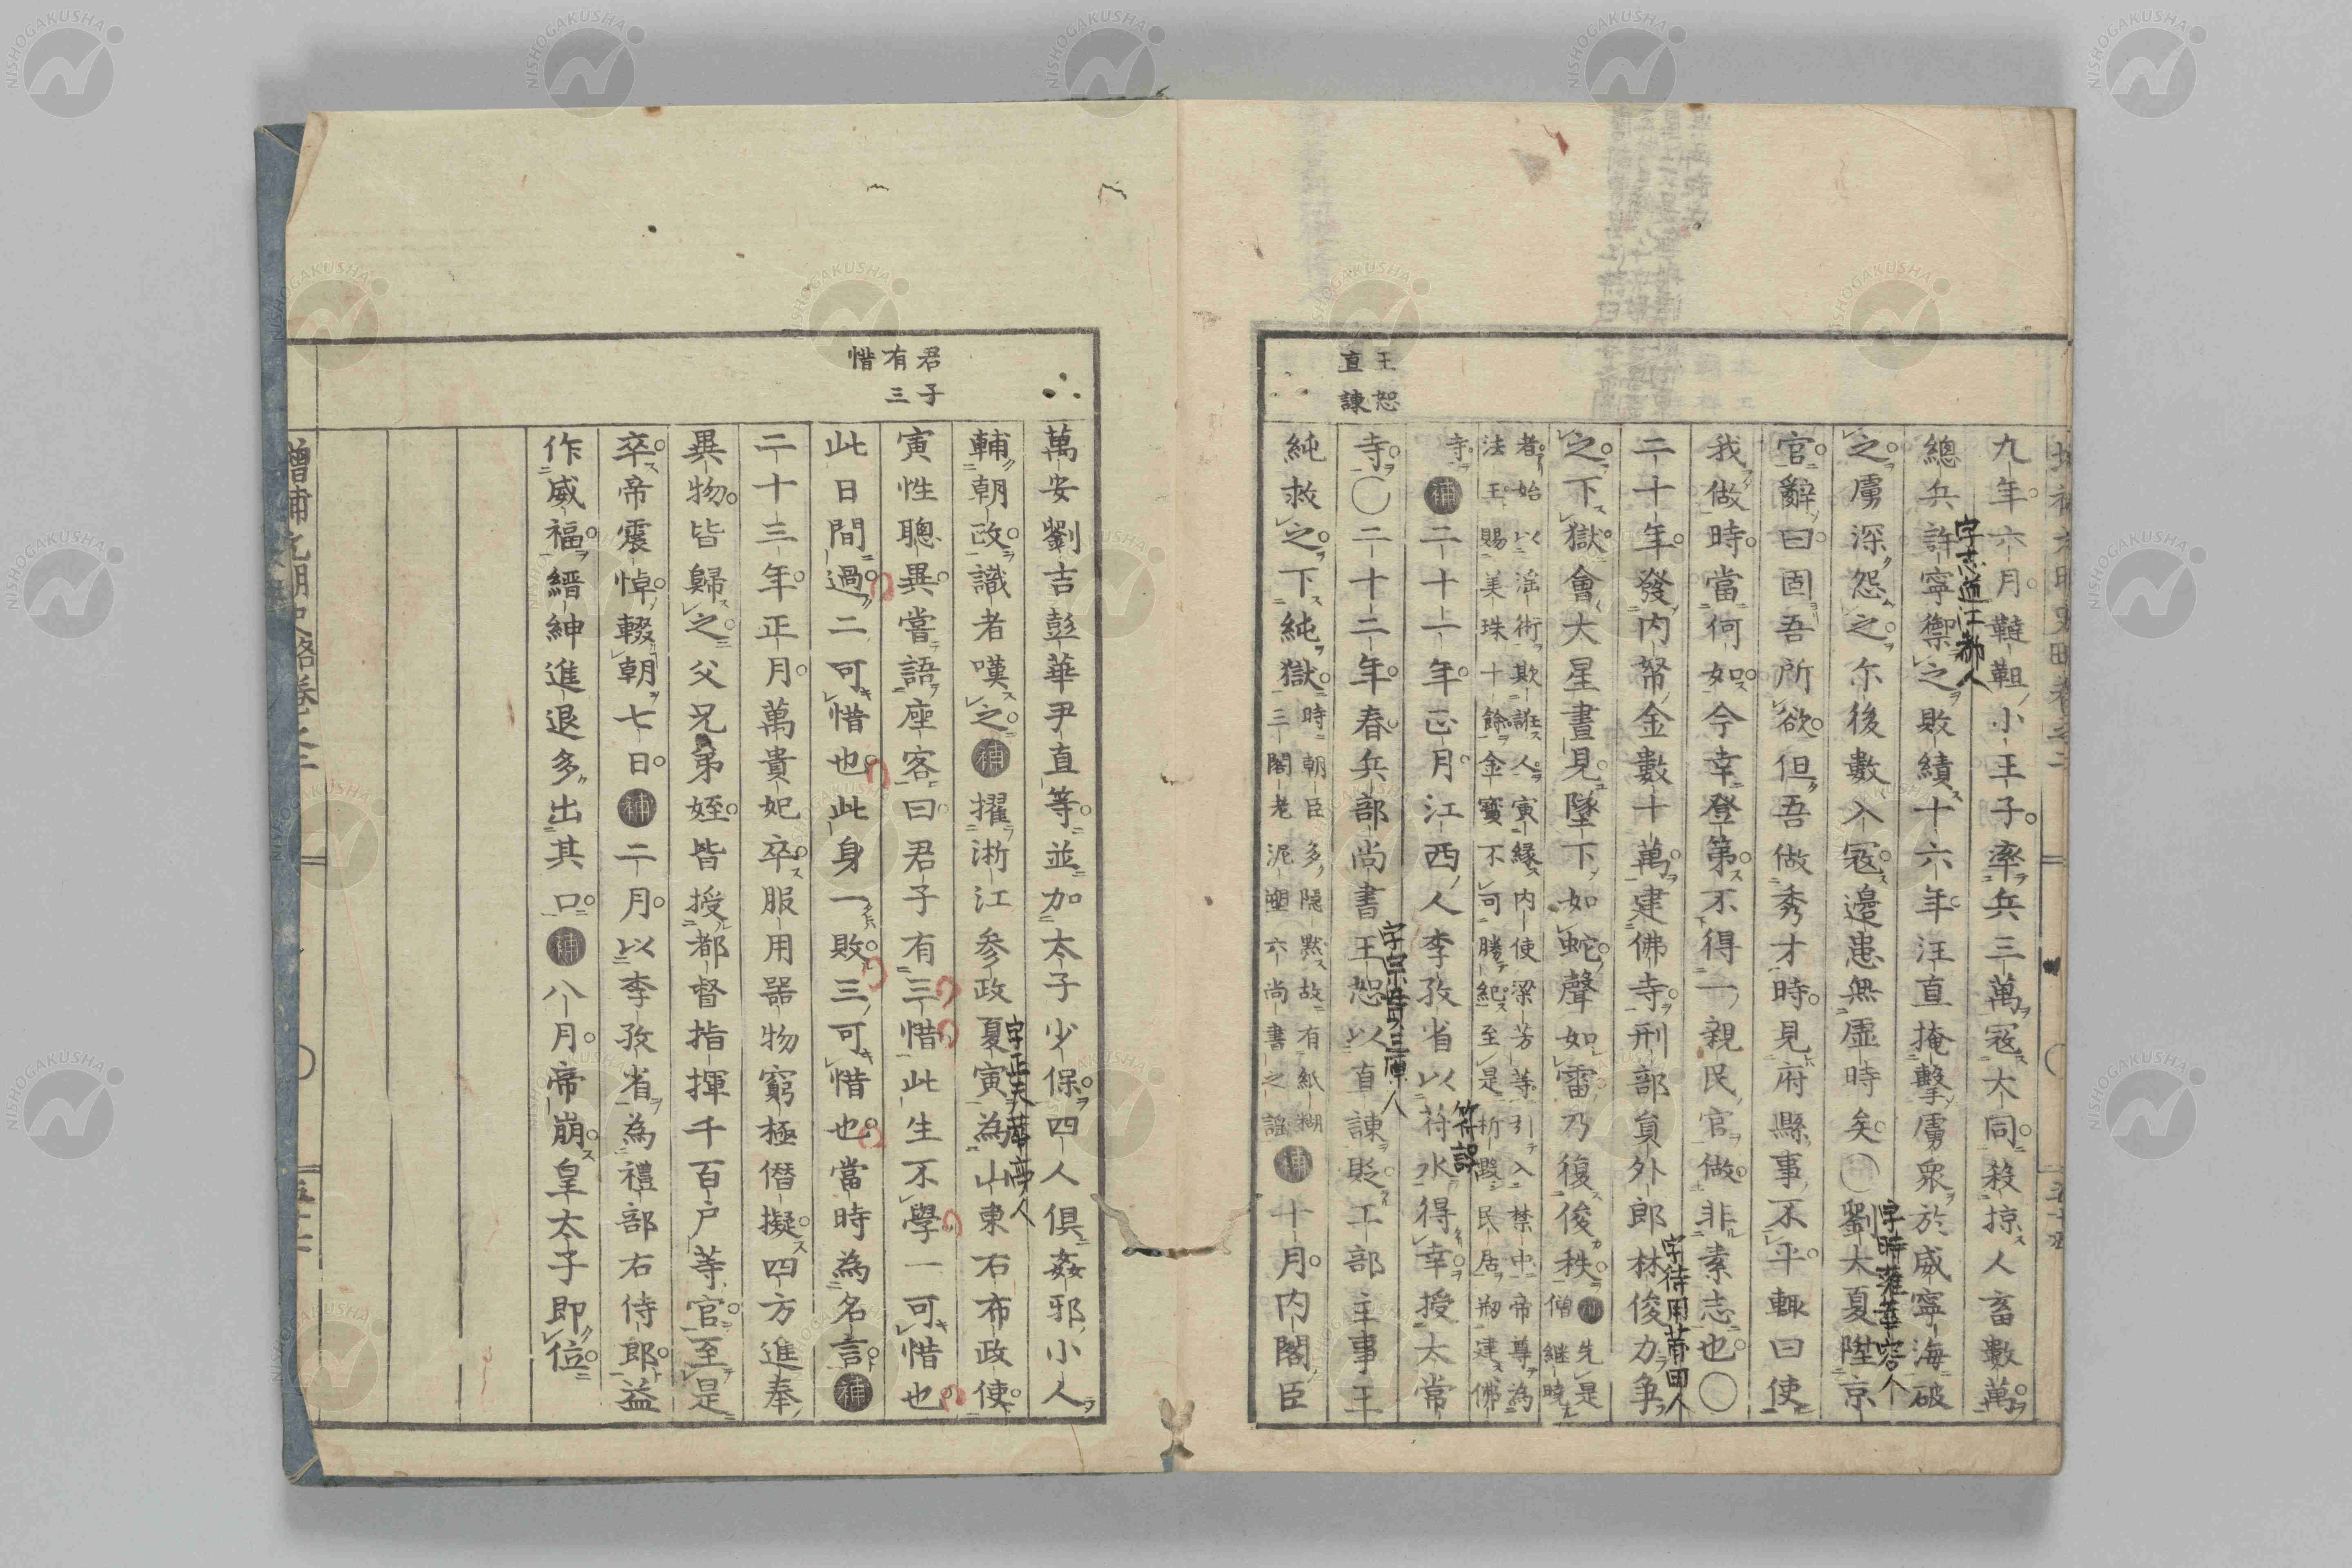 王恕
直諫
九年六月韃靼小王子率兵三萬寇大同殺掠人畜數萬
總兵許寧禦之敗績十六年汪直掩擊虜衆於威寧海破
字志道江都人
之虜深怨之尓後數入寇邊患無虛時矣〇劉大夏陞京
字時雍華容人
官辭曰固吾所欲但吾做秀才時見府縣事不平輒曰使
我做時當何如今幸登第不得一親民官做非素志也〇
二十年發内帑金數十萬建佛寺刑部員外郎林俊力争
字待用莆田人
之下獄會大星晝見墜下如蛇聲如雷乃復俊秩補先是
僧繼曉
者始以滛術欺誑人寅縁内使梁芳等引入禁中帝尊為
法王賜美珠十餘金寶不可勝紀至是折毀民居剏建佛
寺補二十一年正月江西人李孜省以苻水得幸授太常
符誤
寺〇二十二年春兵部尚書王恕以直諫貶工部主事王
字宗貫三原人
純救之下純獄時朝臣多隠默故有紙糊
三閣老泥塑六尚書之謡補十月内閣臣
君子
有三
惜
萬安劉吉彭華尹直等並加太子少保四人俱姦邪小人
輔朝政識者嘆之補擢浙江參政夏寅為山東右布政使
字正夫華亭人
寅性聰異嘗語座客曰君子有三惜此生不學一可惜也
此日間過二可惜也此身一敗三可惜也當時為名言補
二十三年正月萬貴妃卒服用器物窮極僭擬四方進奉
異物皆歸之父兄弟姪皆授都督指揮千百戸等官至是
卒帝震悼輟朝七日補二月以李孜省為禮部右侍郎益
作威福縉紳進退多出其口補八月帝崩皇太子即位